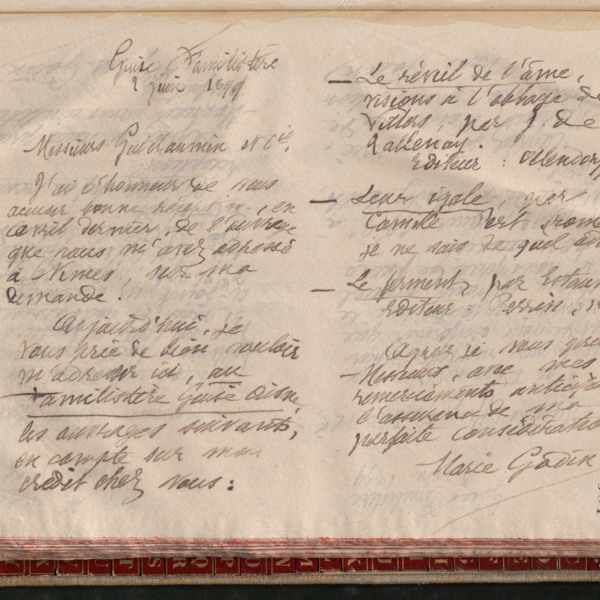 Guise Familistère
2 juin 1899
Messieurs Guillaumin et Cie,
J'ai l'honneur de vous
accuser bonne réception, en
avril dernier, de l'ouvrage
que vous m'avez adressé
à Nîmes, sur ma
demande.
Aujourd'hui, je
vous prie de bien vouloir
m'adresser ici, au
Familistère Guise Aisne,
les ouvrages suivants,
en compte sur mon
crédit chez vous :
— Le réveil de l'âme,
visions à l'abbaye de
Villers, par J. de
Tallenay.
Editeur : Ollendorf
— Leur égale, par
Camille Pert (rom
je ne sais de quel éd
— Le ferment, par Estaun
Editeur : Perrin,
Agréez je vous prie
Messieurs, avec mes
remerciements anticipés
l'assurance de ma
parfaite considération
Marie Godin